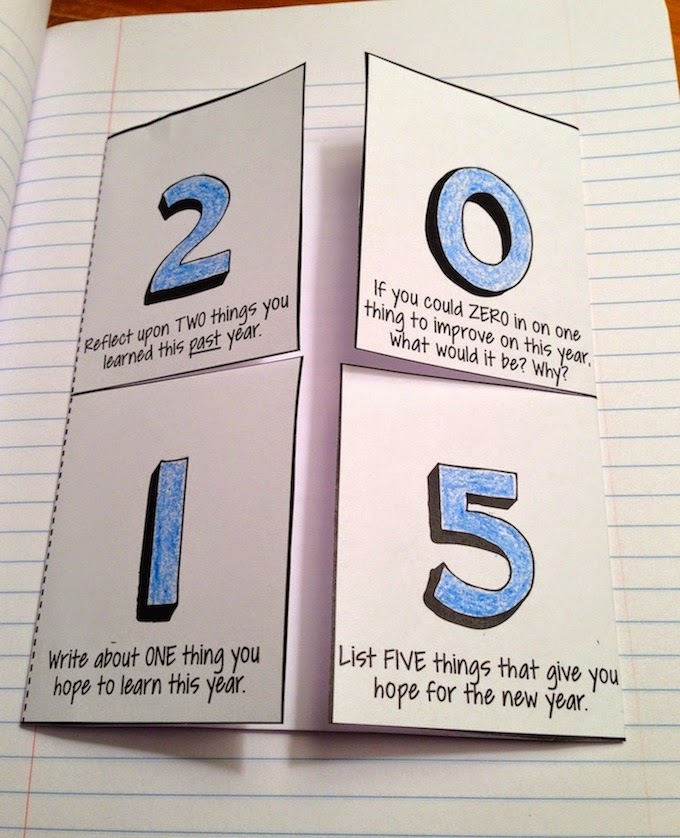 2
Reflect upon TWO things you
learned this past year.
0
If you could ZERO in on one
thing to improve on this year.
What would it be? Why?
1
Write about ONE thing you
hope to learn this year.
5
List FIVE things that give you
hope for the new year.